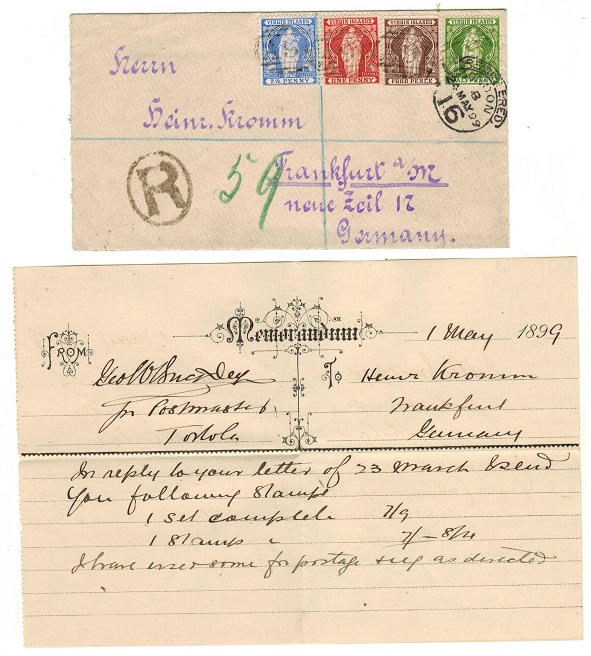 VIRGIN ISLANDS VIRGIN ISLANDS VIRGIN ISLANDS VIRGIN ISLANDS
2½ PENNY ONE PENNY FOUR PENCE
REGISTERED
MAY 99
16
Herrn
Heinr. Kromm
Frankfurt a/M
neue Zeil 17
Germany.
R
59
Memorandum
1 May 1899
FROM
TO
Postmaster
Tortola
Heinr Kromm
Frankfurt
Germany
In reply to your letter of 23 March I send
You following Stamps
1 Set complete 7/9
1 Stamps
I have used some for postage & reg as directed